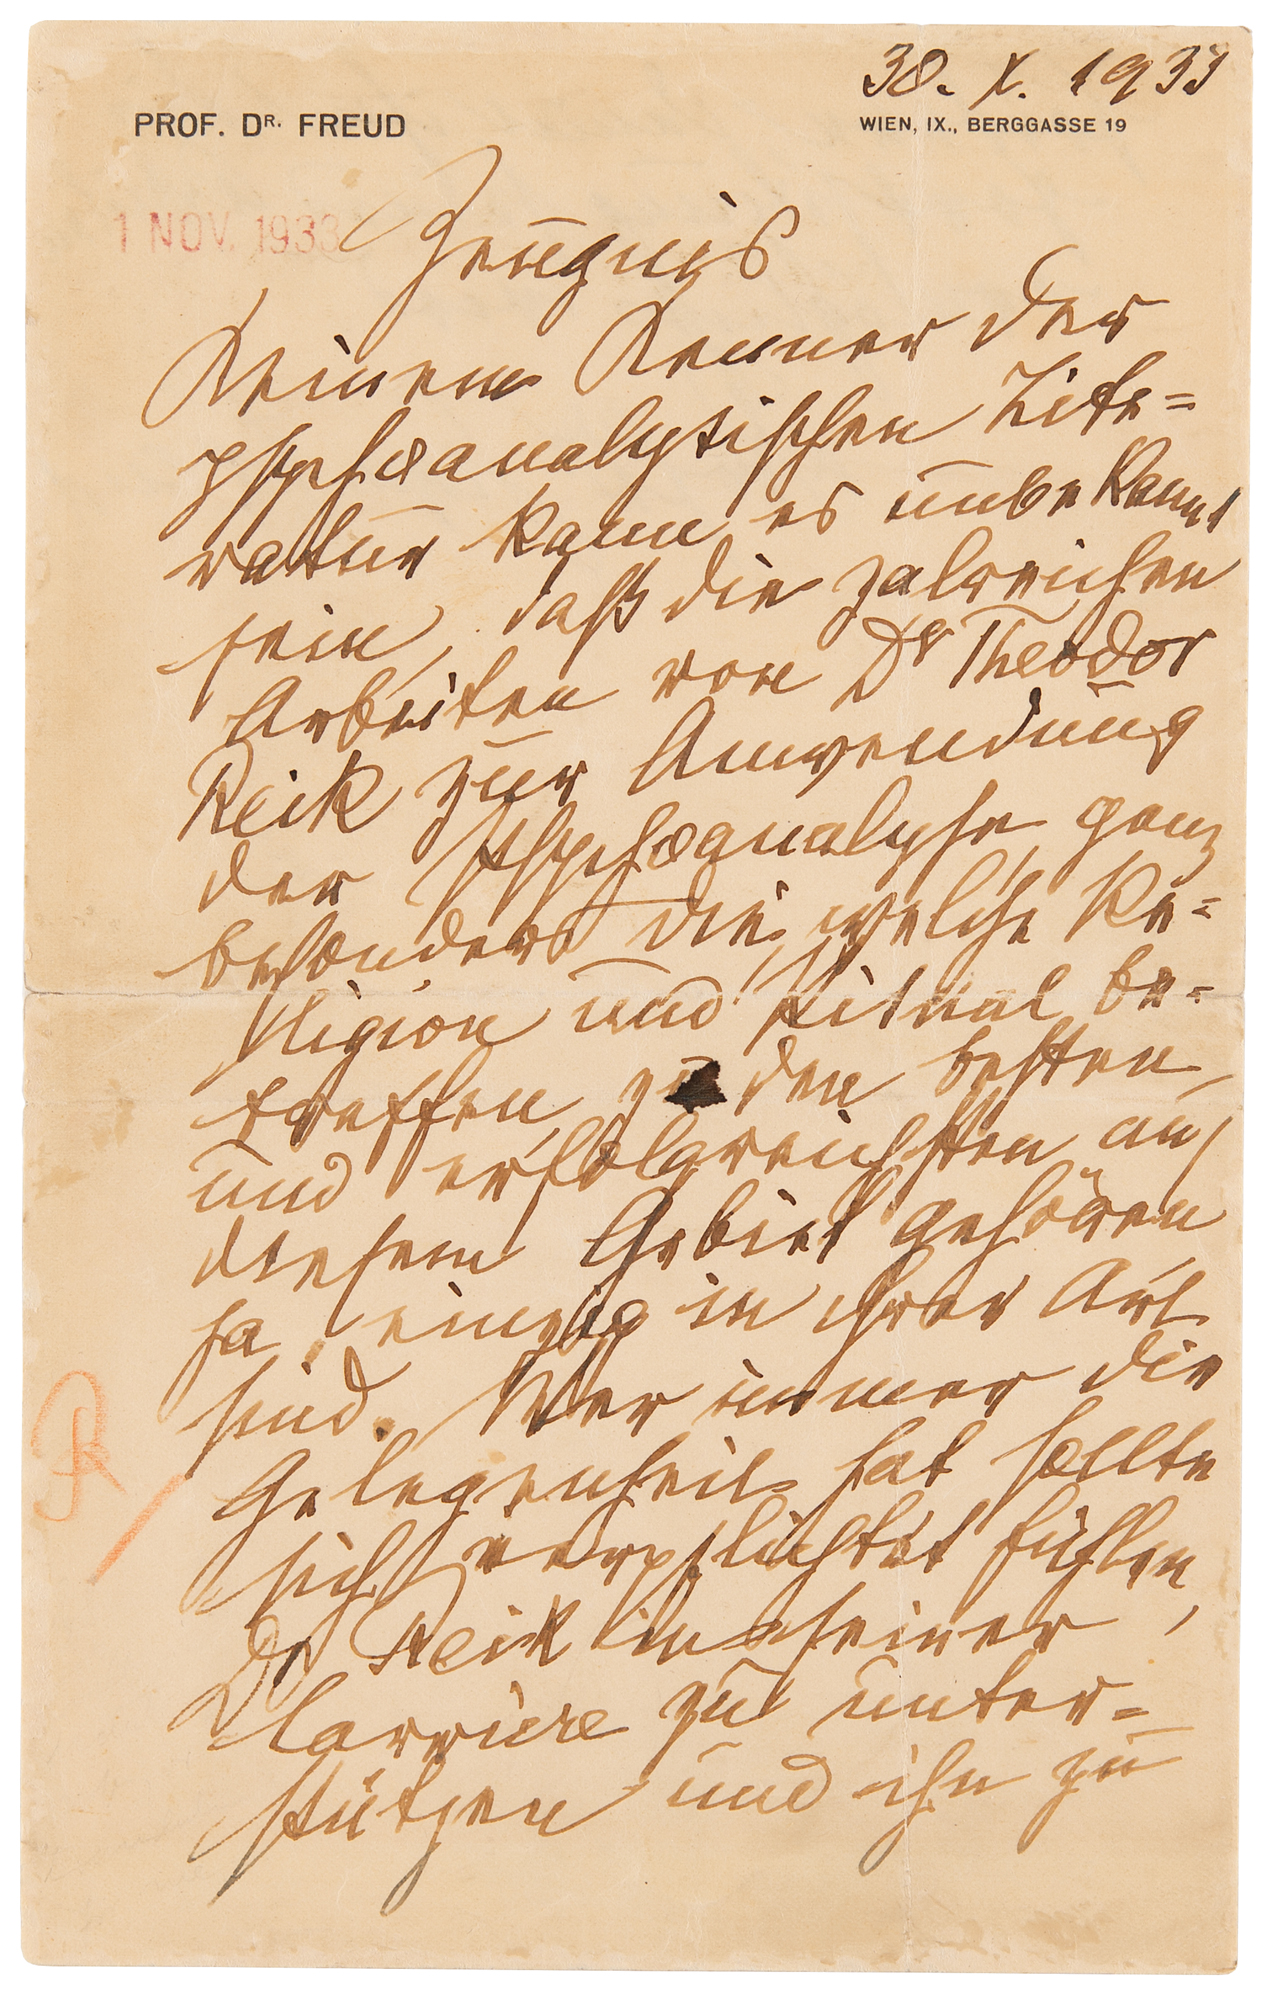 30. X. 1933
PROF. DR. FREUD
WIEN, IX., BERGGASSE 19
1 NOV. 1933
Zeugnis
Keinem Kenner der
psychoanalytischen Lite=
ratur kann es unbekannt
sein, daß die zalreichen
Arbeiten von Dr Theodor
Reik zur Anwendung
der Psychoanalyse, ganz
besonders die, welche Re=
ligion und Ritual be=
treffen, zu den besten
und erfolgreichsten auf
diesem Gebiet gehören
ja, einzig in ihrer Art
sind. Wer immer die
Gelegenheit hat sollte
sich verpflichtet fühlen,
Dr Reik in seiner
Carriere zu unter=
stützen und ihn zu